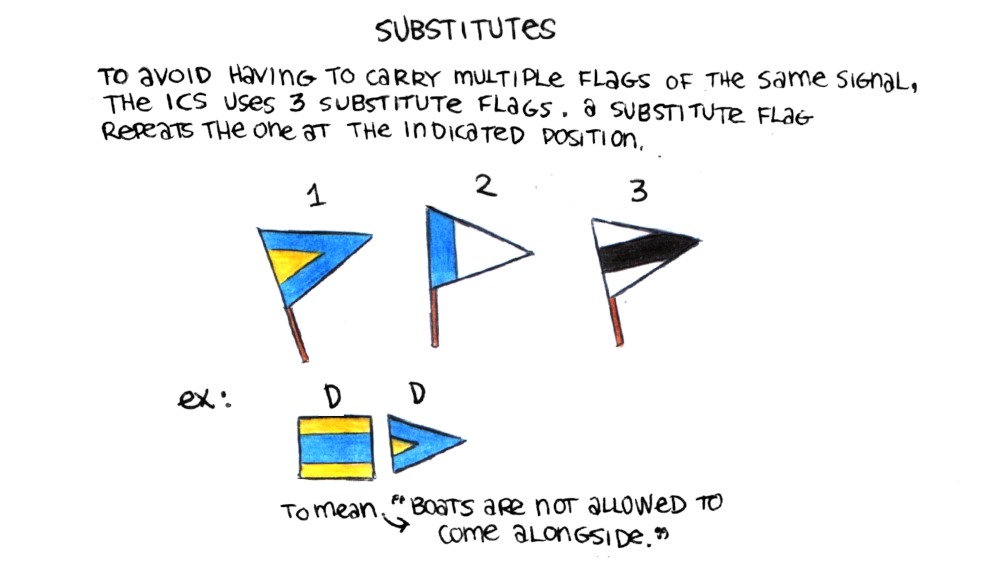 SUBSTITUTES
TO AVOID HAVING TO CARRY MULTIPLE FLAGS OF THE SAME SIGNAL,
THE ICS USES 3 SUBSTITUTE FLAGS. A SUBSTITUTE FLAG
REPEATS THE ONE AT THE INDICATED POSITION.
1 2 3
ex: D D
TO mean "BOATS ARE NOT ALLOWED TO
COME ALONGSIDE."